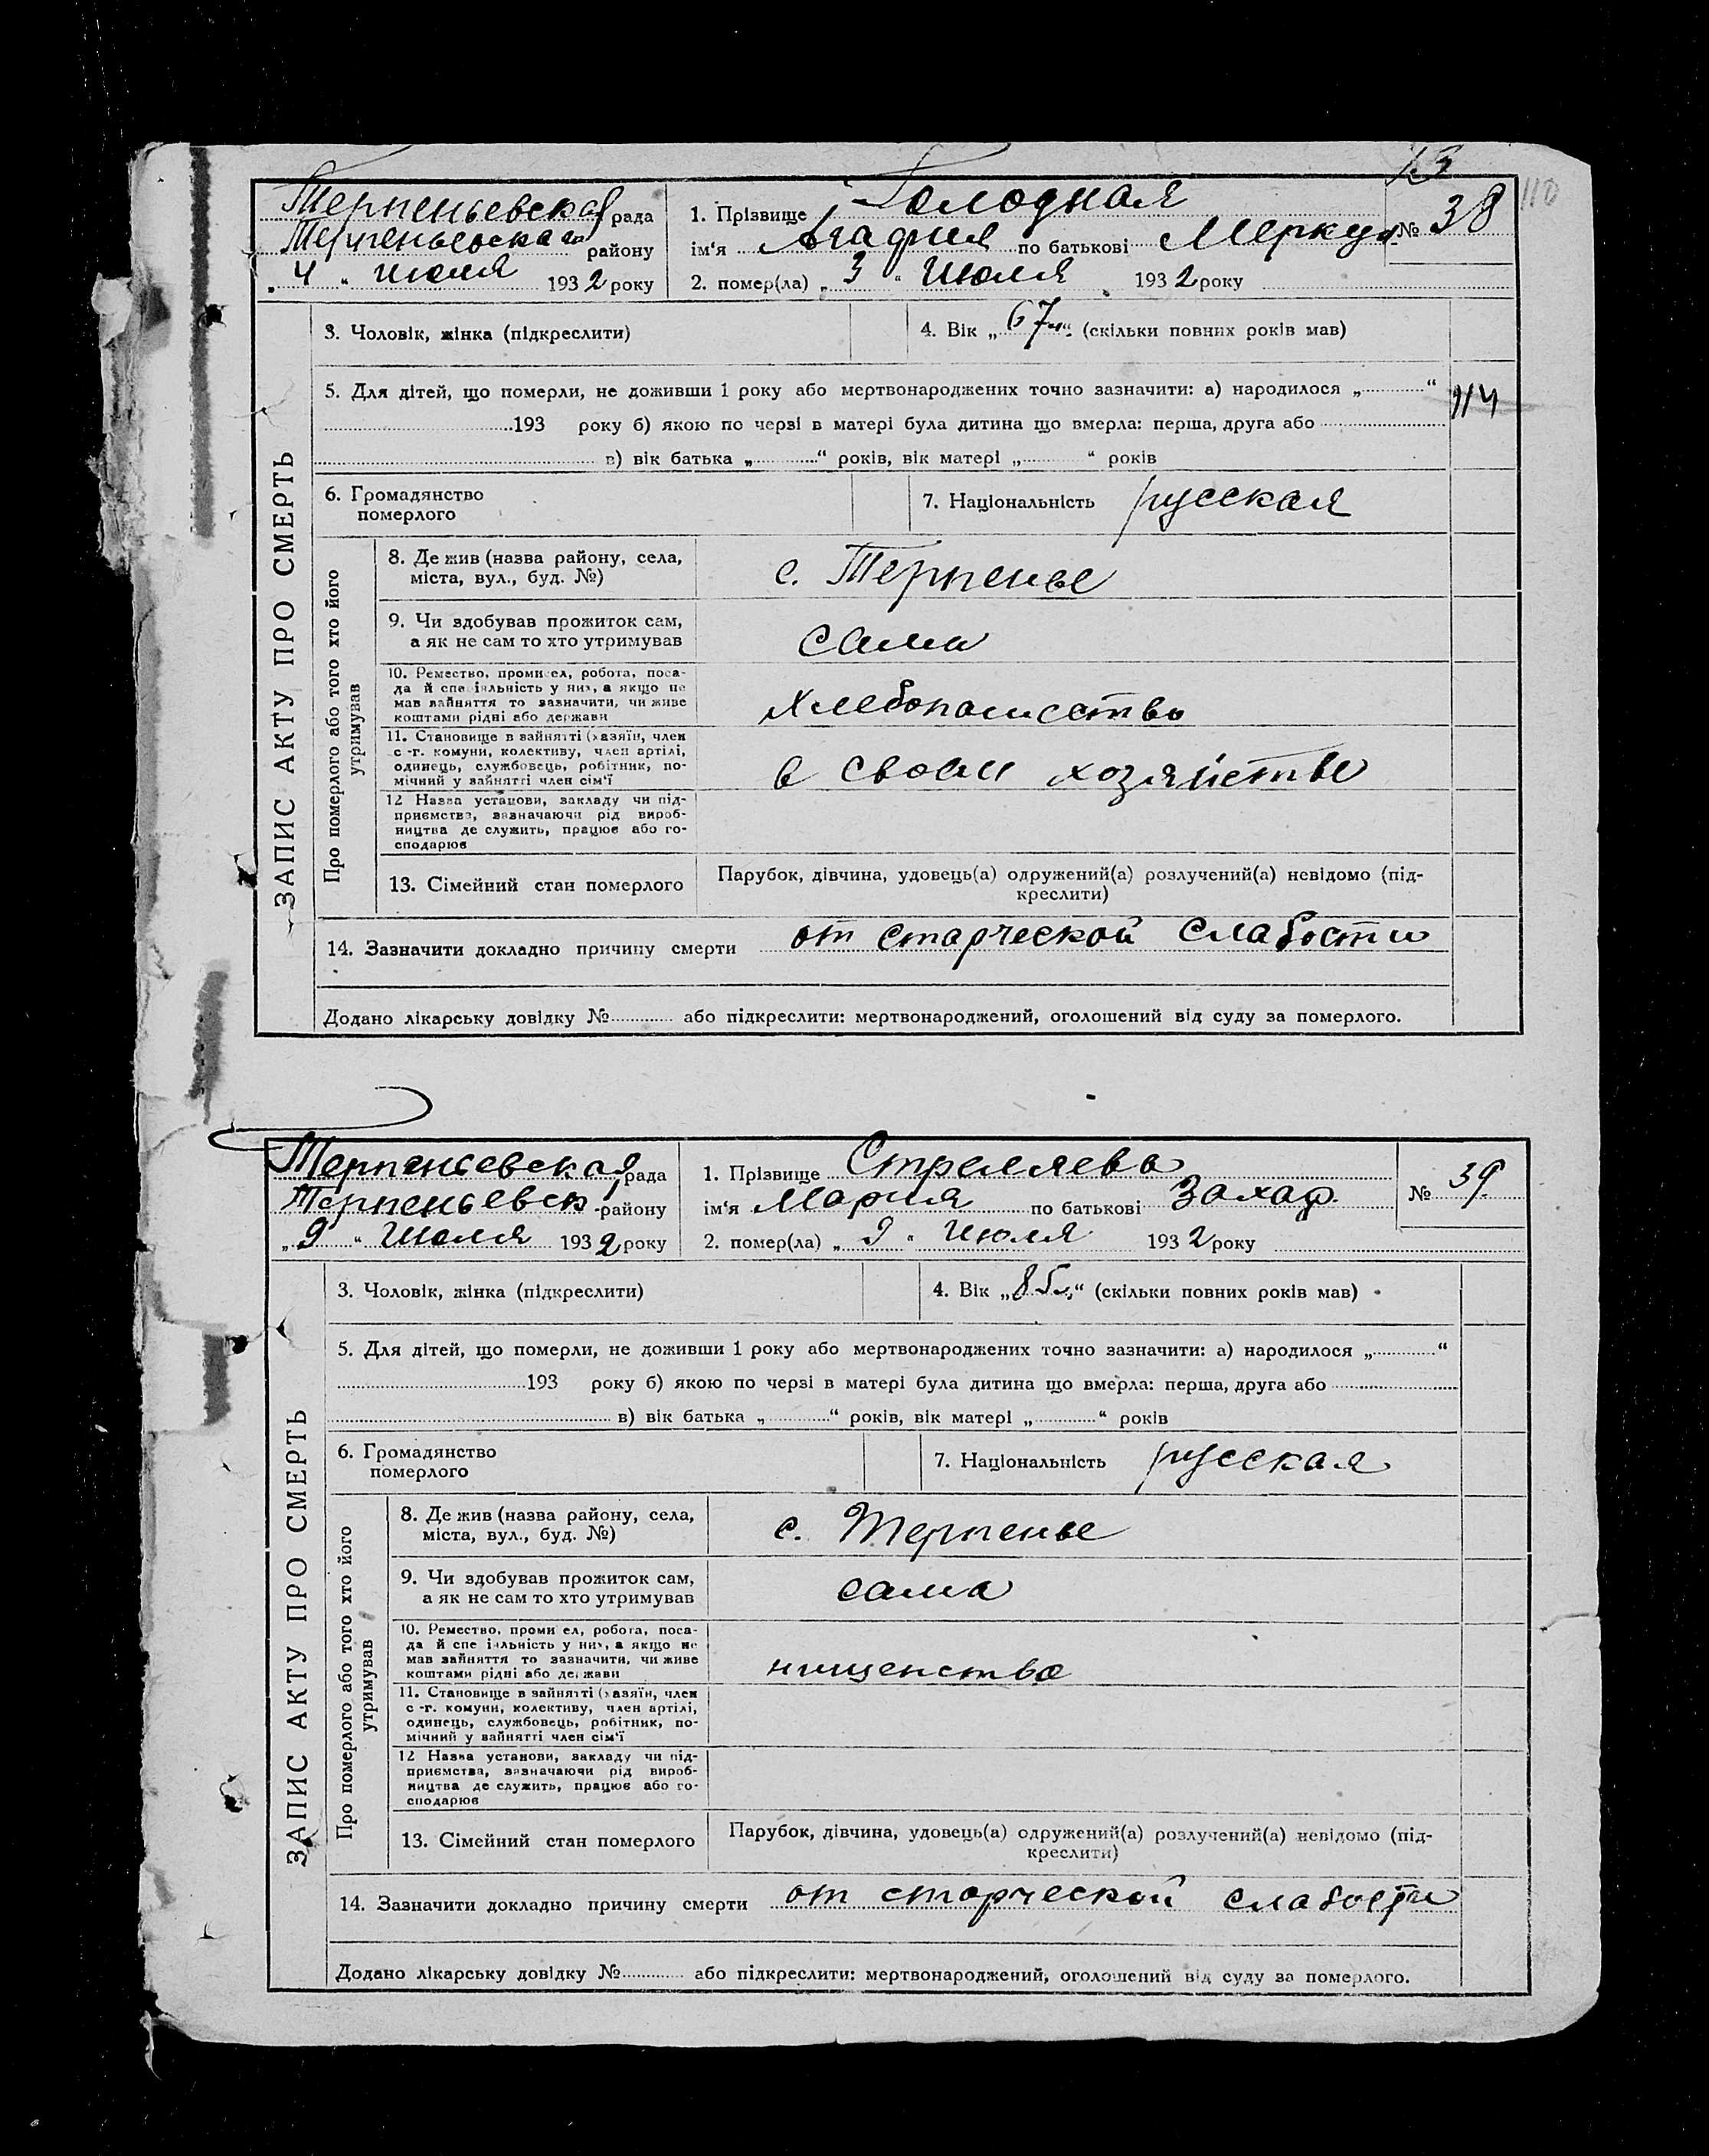 13
110
Терпеньевская рада
Терпеньевского району
„ 4 “ июля 1932 року
1. Прізвище Голодная
ім‘я Агафия по батькові Меркул.
№ 38
2. помер(ла) „ 3 “ Июля 1932 року
ЗАПИС АКТУ ПРО СМЕРТЬ
3. Чоловік, жінка (підкреслити)
4. Вік „ 67 “ (скільки повних років мав)
5. Для дітей, що померли, не доживши 1 року або мертвонароджених точно зазначити: а) народилося „ “
114
193 року б) якою по черзі в матері була дитина що вмерла: перша, друга або
в) вік батька „ “ років, вік матері „ “ років
6. Громадянство
померлого
7. Національність русская
Про померлого або того хто його
утримував
8. Де жив (назва району, села,
міста, вул., буд. №)
с. Терпенье
9. Чи здобував прожиток сам,
а як не сам то хто утримував
сама
10. Ремество, промисел, робота, поса-
да й спеціяльність у них, а якщо не
мав зайняття то зазначити, чи живе
коштами рідні або держави
хлебопашество
11. Становище в зайнятті (хазяїн, член
с.-г. комуни, колективу, член артілі,
одинець, службовець, робітник, по-
мічний у зайнятті член сім‘ї
в своем хозяйстве
12 Назва установи, закладу чи під-
приємства, зазначаючи рід вироб-
ництва де служить, працює або го-
сподарює
13. Сімейний стан померлого
Парубок, дівчина, удовець(а) одружений(а) розлучений(а) невідомо (під-
креслити)
14. Зазначити докладно причину смерти от старческой слабости
Додано лікарську довідку № або підкреслити: мертвонароджений, оголошений від суду за померлого.
Терпеньевская рада
Терпеньевск. району
„ 9 “ Июля 1932 року
1. Прізвище Стреляева
ім‘я Мария по батькові Захар.
№ 39
2. помер(ла) „ 9 “ Июля 1932 року
ЗАПИС АКТУ ПРО СМЕРТЬ
3. Чоловік, жінка (підкреслити)
4. Вік „ 85 “ (скільки повних років мав)
5. Для дітей, що померли, не доживши 1 року або мертвонароджених точно зазначити: а) народилося „ “
193 року б) якою по черзі в матері була дитина що вмерла: перша, друга або
в) вік батька „ “ років, вік матері „ “ років
6. Громадянство
померлого
7. Національність русская
Про померлого або того хто його
утримував
8. Де жив (назва району, села,
міста, вул., буд. №)
с. Терпенье
9. Чи здобував прожиток сам,
а як не сам то хто утримував
сама
10. Ремество, промисел, робота, поса-
да й спеціяльність у них, а якщо не
мав зайняття то зазначити, чи живе
коштами рідні або держави
нищенство
11. Становище в зайнятті (хазяїн, член
с.-г. комуни, колективу, член артілі,
одинець, службовець, робітник, по-
мічний у зайнятті член сім‘ї
12 Назва установи, закладу чи під-
приємства, зазначаючи рід вироб-
ництва де служить, працює або го-
сподарює
13. Сімейний стан померлого
Парубок, дівчина, удовець(а) одружений(а) розлучений(а) невідомо (під-
креслити)
14. Зазначити докладно причину смерти от старческой слабости
Додано лікарську довідку № або підкреслити: мертвонароджений, оголошений від суду за померлого.